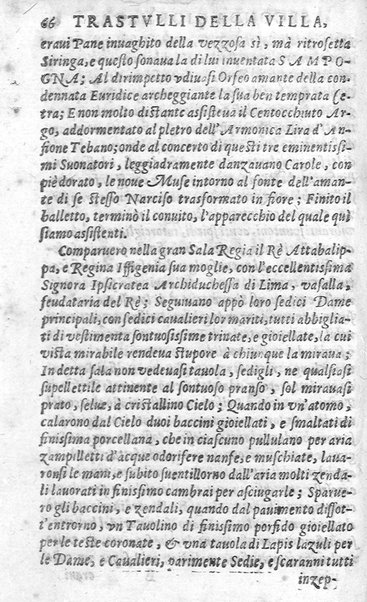 66 TRASTVLLI DELLA VILLA,
eraui Pane inuaghito della vezzosa sì, mà ritrosetta
Siringa, e questo sonaua la di lui inuentata SAMPO-
GNA; Al dirimpetto vdiuasi Orfeo amante della con-
dennata Euridice archeggiante la sua ben temprata Ce-
tra; E non molto distante assisteua il Centocchiuto Ar-
go, addormentato al pletro dell'Armonica Lira d'An-
fione Tebano; onde al concerto di questi tre eminentissi-
mi Suonatori, leggiadramente danzauano Carole, con
piè dorato, le noue Muse intorno al fonte dell'aman-
te di se stesso Narciso trasformato in fiore; Finito il
balletto, terminò il conuito, l'apparecchio del quale quì
siamo assistenti.
Comparuero nella gran Sala Regia il Rè Attabalip-
pa, e Regina Iffigenia sua moglie, con l'eccellentissima
Signora Ipsicratea Archiduchessa di Lima, vasalla,
feudataria del Rè; Seguiuano appò loro sedici Dame
principali, con sedici caualieri lor mariti, tutti abbiglia-
ti di vestimenta sontuosissime trinate, e gioiellate, la cui
vista mirabile rendeua stupore à chiunque la miraua;
In detta sala non vedeuasi tauola, sedigli, ne qualsisia
supellettile attinente al sontuoso pranso, sol mirauasi
prato, selue, à cristallino Cielo; Quando in vn'atomo,
calarono dal Cielo duoi baccini gioiellati, e smaltati di
finissima porcellana, che in ciascuno pullulano per aria
zampilletti d'acque odorifere nanfe, e muschiate, laua-
ronsi le mani, e subito suentillorno dall'aria molti zenda-
li lauorati in finissimo cambrai per asciugarle; Sparue-
ro gli baccini, e zendali, quando dal pauimento dissot-
t'entrorno, vn Tauolino di finissimo porfido gioiellato
per le teste coronate, & vna tauola di Lapis lazuli per
le Dame, e Caualieri, parimente Sedie, e scaranni tutti
inzep-